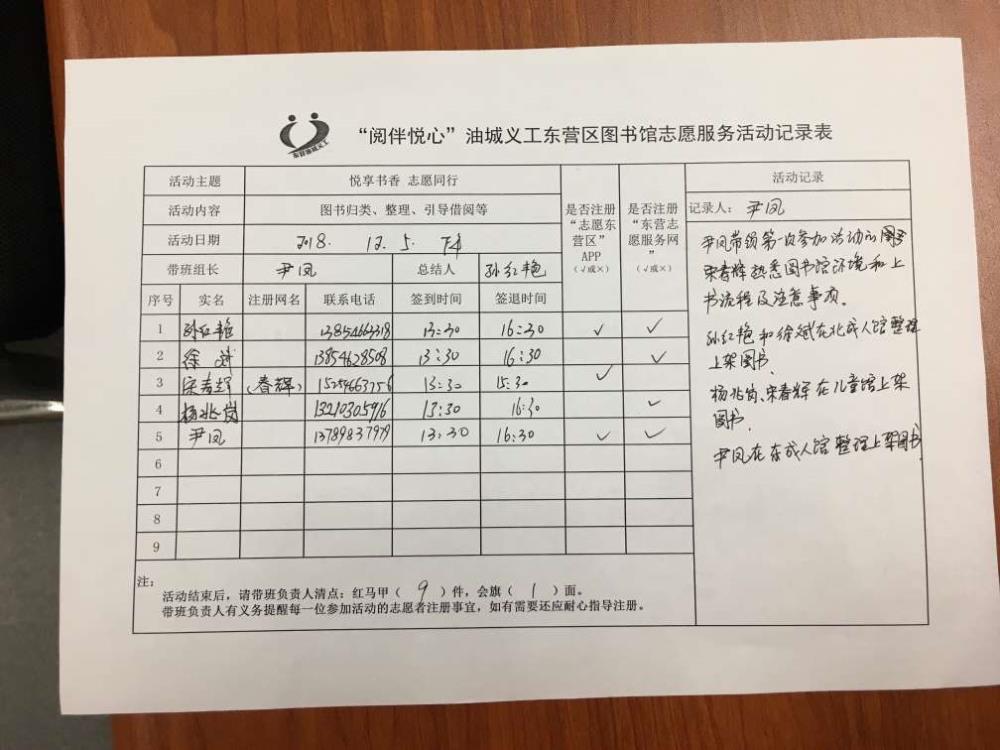 东营油城义工
“阅伴悦心”油城义工东营区图书馆志愿服务活动记录表
活动主题 悦享书香 志愿同行
活动内容 图书归类、整理、引导借阅等
活动日期 2018. 12. 5. 下午
带班组长 尹凤 总结人 孙红艳
是否注册“志愿东营区”APP（√或×）
是否注册“东营志愿服务网”（√或×）
序号 实名 注册网名 联系电话 签到时间 签退时间
1 孙红艳 13854663318 13:30 16:30 √ √
2 徐斌 13854628508 13:30 16:30 √
3 宋春辉 （春辉） 13:30 15:30 √
4 杨兆岗 13210305916 13:30 16:30 √
5 尹凤 13789837979 13:30 16:30 √ √
6
7
8
9
注：
活动结束后，请带班负责人清点：红马甲（ 9 ）件，会旗（ 1 ）面。
带班负责人有义务提醒每一位参加活动的志愿者注册事宜，如有需要还应耐心指导注册。
活动记录
记录人：尹凤
尹凤带领第一次参加活动的
宋春辉熟悉图书馆环境和上
书流程及注意事项。
孙红艳和徐斌在北成人馆整理
上架图书.
杨兆岗、宋春辉在儿童馆上架
图书.
尹凤在东成人馆整理上架图书